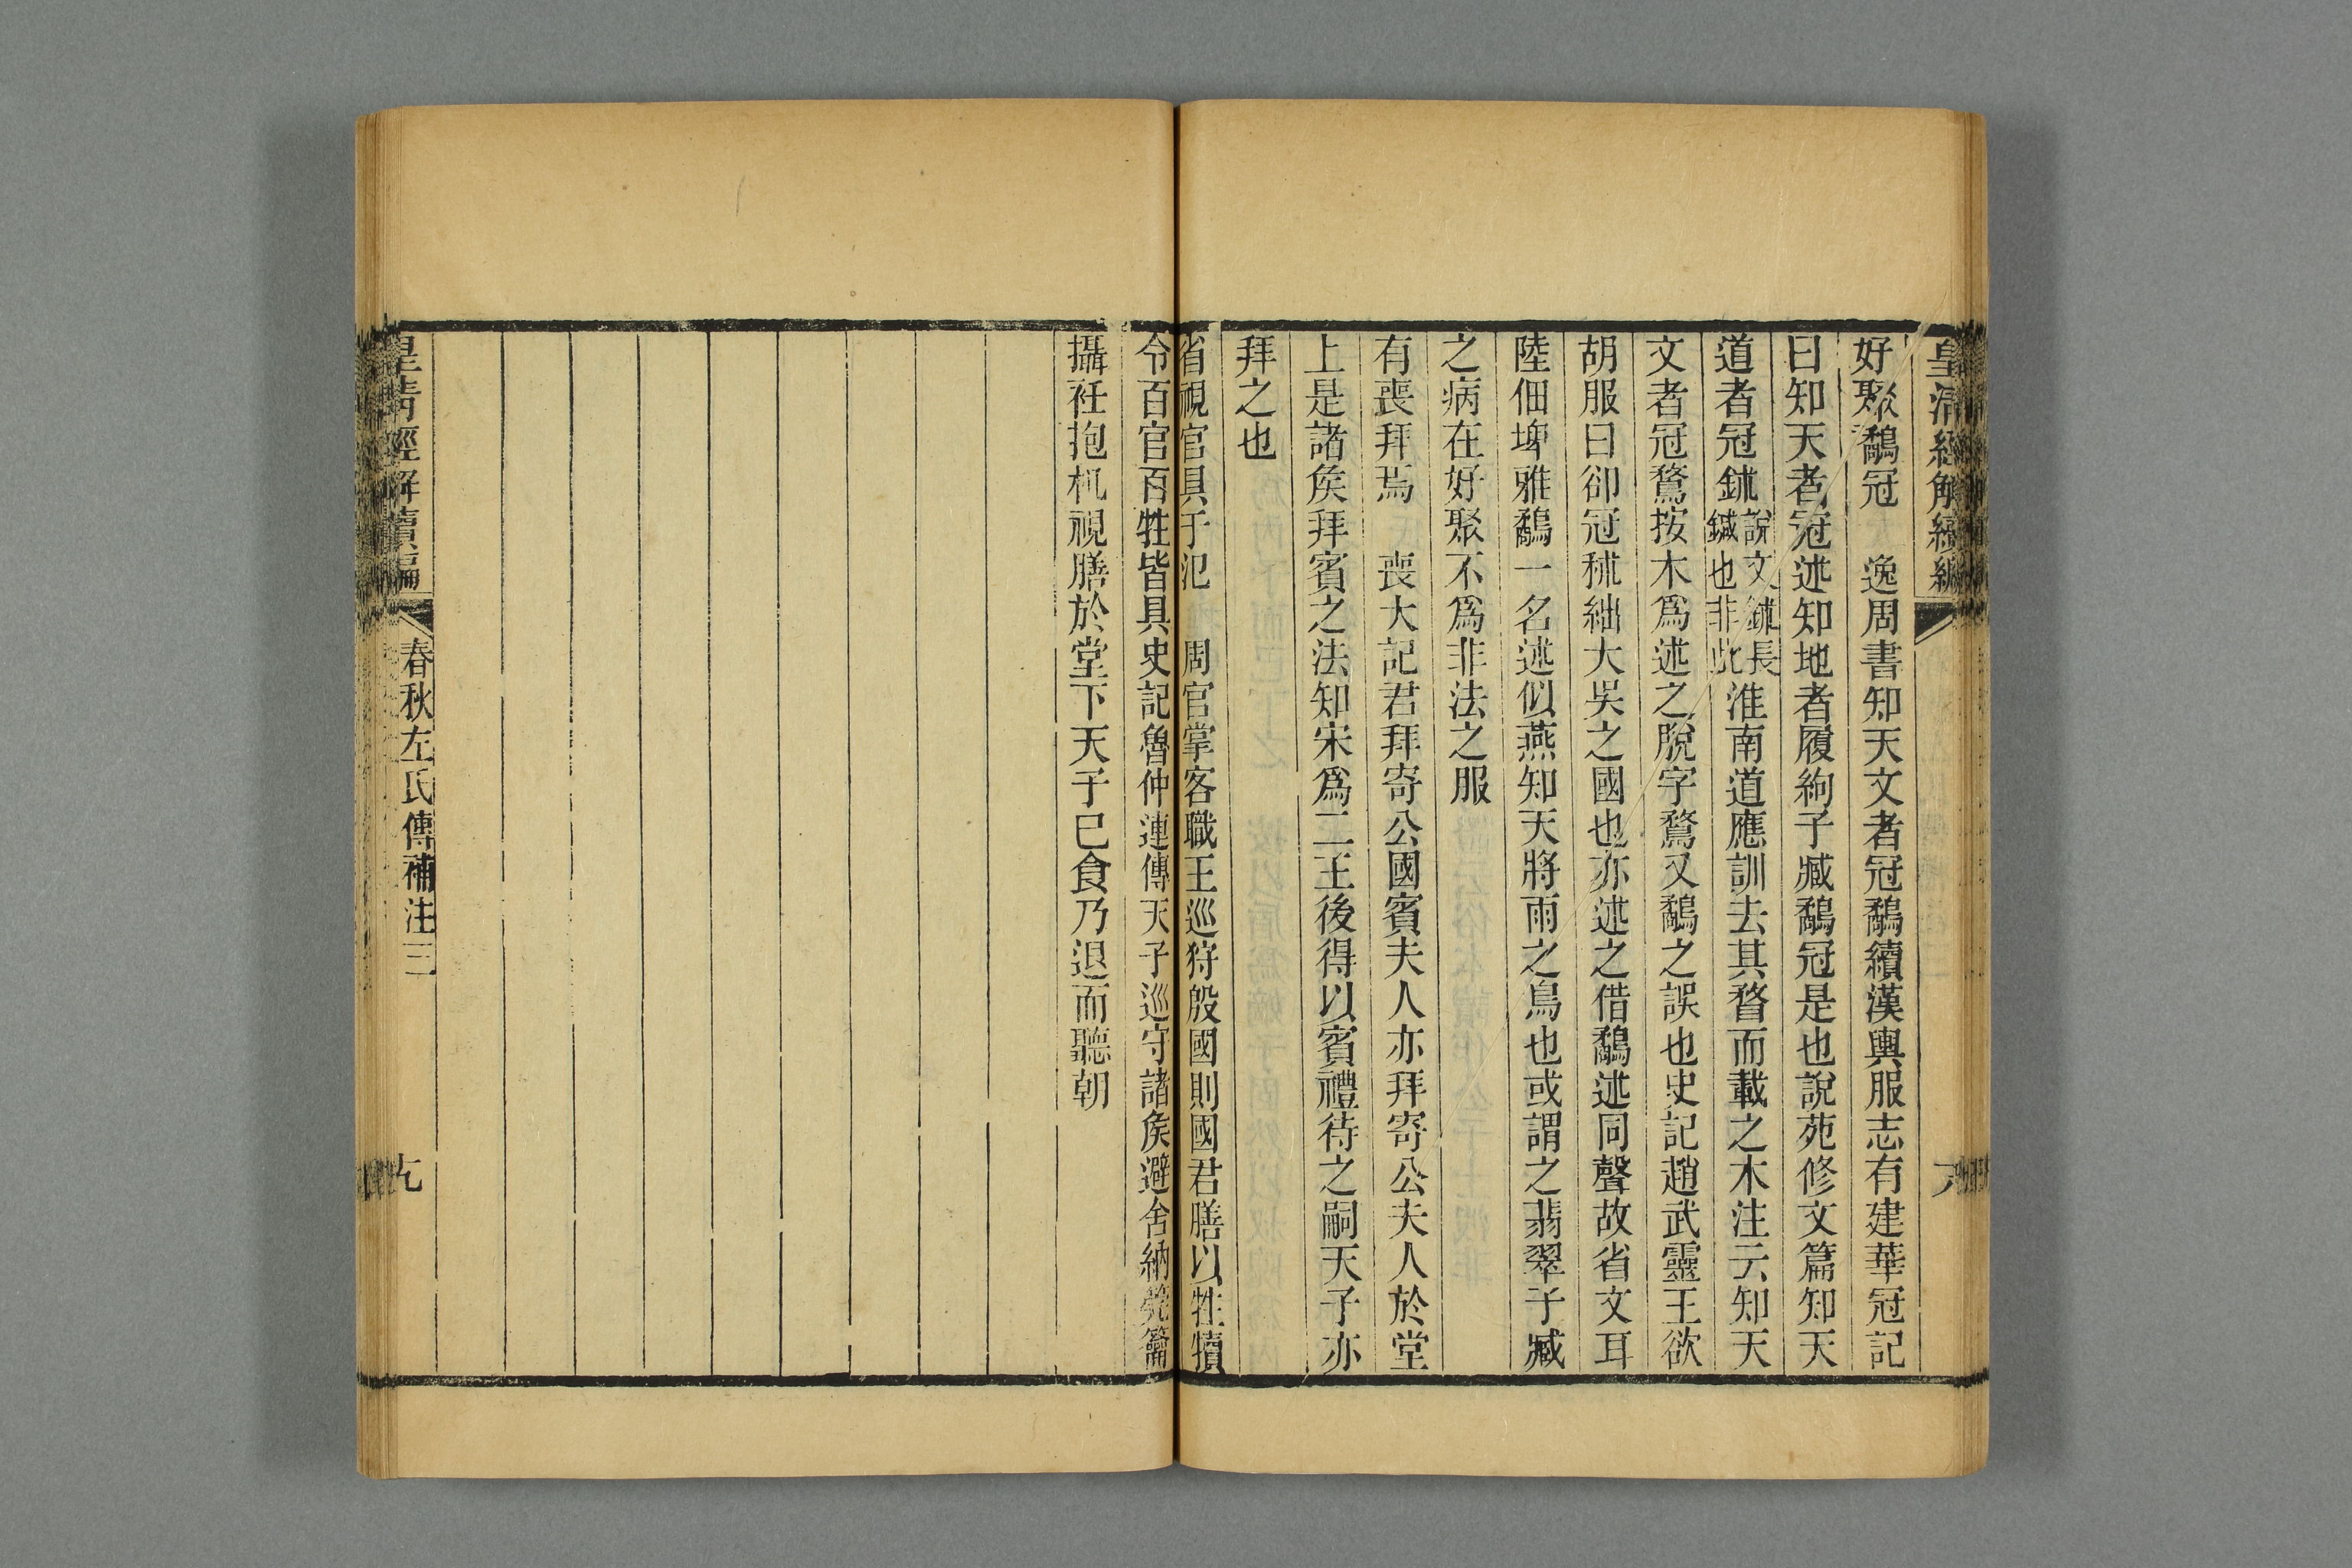 皇清經解續編
好聚鷸冠　逸周書知天文者冠鷸續漢輿服志有建華冠記
曰知天者冠述知地者履絇子臧鷸冠是也說苑修文篇知天
道者冠鉥說文鉥長鍼也非此淮南道應訓去其瞀而載之木注云知天
文者冠鶩按木爲述之脫字鶩又鷸之誤也史記趙武靈王欲
胡服曰卻冠秫絀大吳之國也亦述之借鷸述同聲故省文耳
陸佃埤雅鷸一名述似燕知天將雨之鳥也或謂之翡翠子臧
之病在好聚不爲非法之服
有喪拜焉　喪大記君拜寄公國賓夫人亦拜寄公夫人於堂
上是諸矦拜賓之法知宋爲二王後得以賓禮待之嗣天子亦
拜之也
省視官具于氾　周官掌客職王巡狩殷國則國君膳以牲犢
令百官百牲皆具史記魯仲連傳天子巡守諸矦避舍納筦籥
攝衽抱机視膳於堂下天子已食乃退而聽朝
皇清經解續編
春秋左氏傳補注三
九